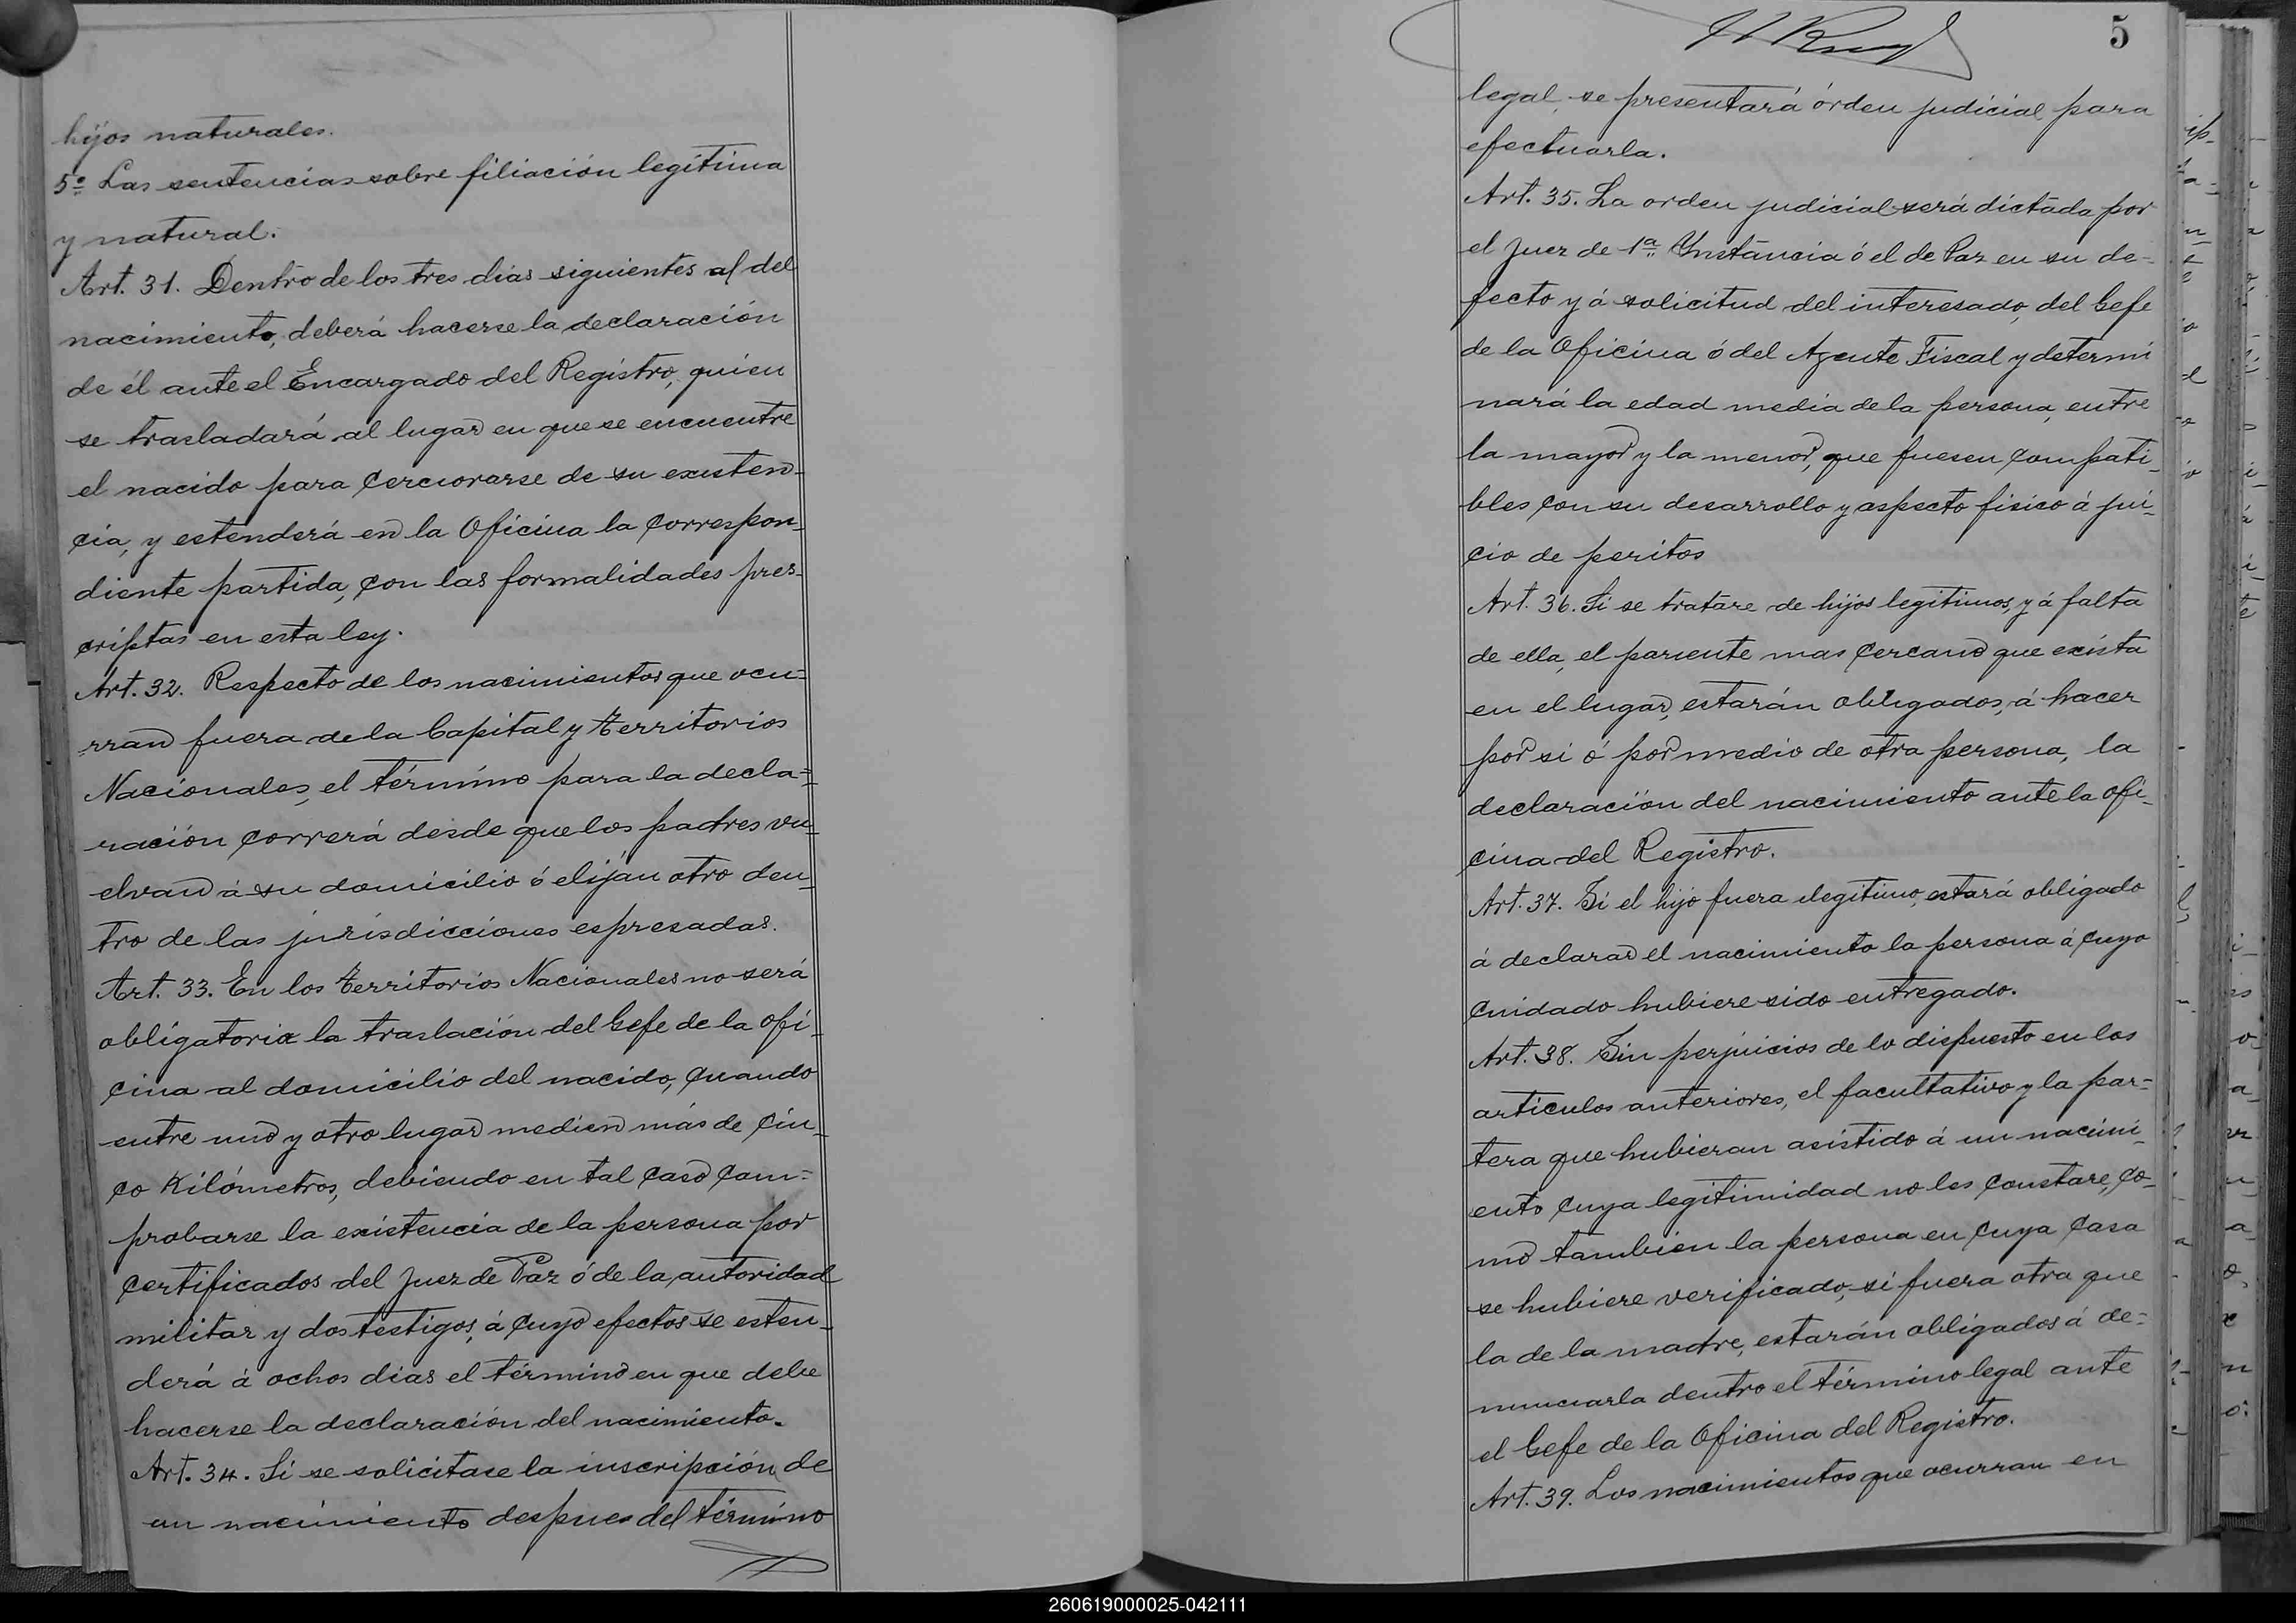 hijos naturales.
5º Las sentencias sobre filiación legítima
y natural.
Art. 31. Dentro de los tres dias siguientes al del
nacimiento, deberá hacerse la declaración
de él ante el Encargado del Registro, quien
se trasladará al lugar en que se encuentre
el nacido para cerciorarse de su existen-
cia, y estenderá en la Oficina la correspon-
diente partida, con las formalidades pres-
criptas en esta ley.
Art. 32. Respecto de los nacimientos que ocu=
rran fuera de la Capital y territorios
Nacionales, el término para la decla=
ración correrá desde que los padres vu-
elvan á su domicilio ó elijan otro den-
tro de las jurisdicciones espresadas.
Art. 33. En los territorios Nacionales no será
obligatoria la traslación del Gefe de la ofi-
cina al domicilio del nacido, cuando
entre uno y otro lugar medien más de cin-
co Kilómetros, debiendo en tal caso com=
probarse la existencia de la persona por
certificados del Juez de Paz ó de la autoridad
militar y dos testigos, á cuyo efectos se esten-
derá á ochos dias el término en que debe
hacerse la declaración del nacimiento.
Art. 34. Si se solicitase la inscripción de
un nacimiento despues del término
5
legal, se presentará órden judicial para
efectuarla.
Art. 35. La orden judicial será dictada por
el Juez de 1ª Ynstancia ó el de Paz en su de-
fecto y á solicitud del interesado, del Gefe
de la Oficina ó del Agente Fiscal y determi
nará la edad media de la persona, entre
la mayor y la menor, que fuesen compati-
bles con su desarrollo y aspecto fisico á jui-
cio de peritos
Art. 36. Si se tratare de hijos legitimos, y á falta
de ella, el pariente mas cercano que exista
en el lugar, estarán obligados, á hacer
por si ó por medio de otra persona, la
declaración del nacimiento ante la ofi-
cina del Registro.
Art. 37. Si el hijo fuera ilegitimo, estará obligado
á declarar el nacimiento la persona á cuyo
cuidado hubiere sido entregado.
Art. 38. Sin perjuicios de lo dispuesto en los
articulos anteriores, el facultativo y la par-
tera que hubieran asistido á un nacimi-
ento cuya legitimidad no les constare, co-
mo tambien la persona en cuya casa
se hubiere verificado, si fuera otra que
la de la madre, estarán obligados á de=
nunciarla dentro el término legal ante
el Gefe de la Oficina del Registro.
Art. 39. Los nacimientos que ocurran en
260619000025-042111